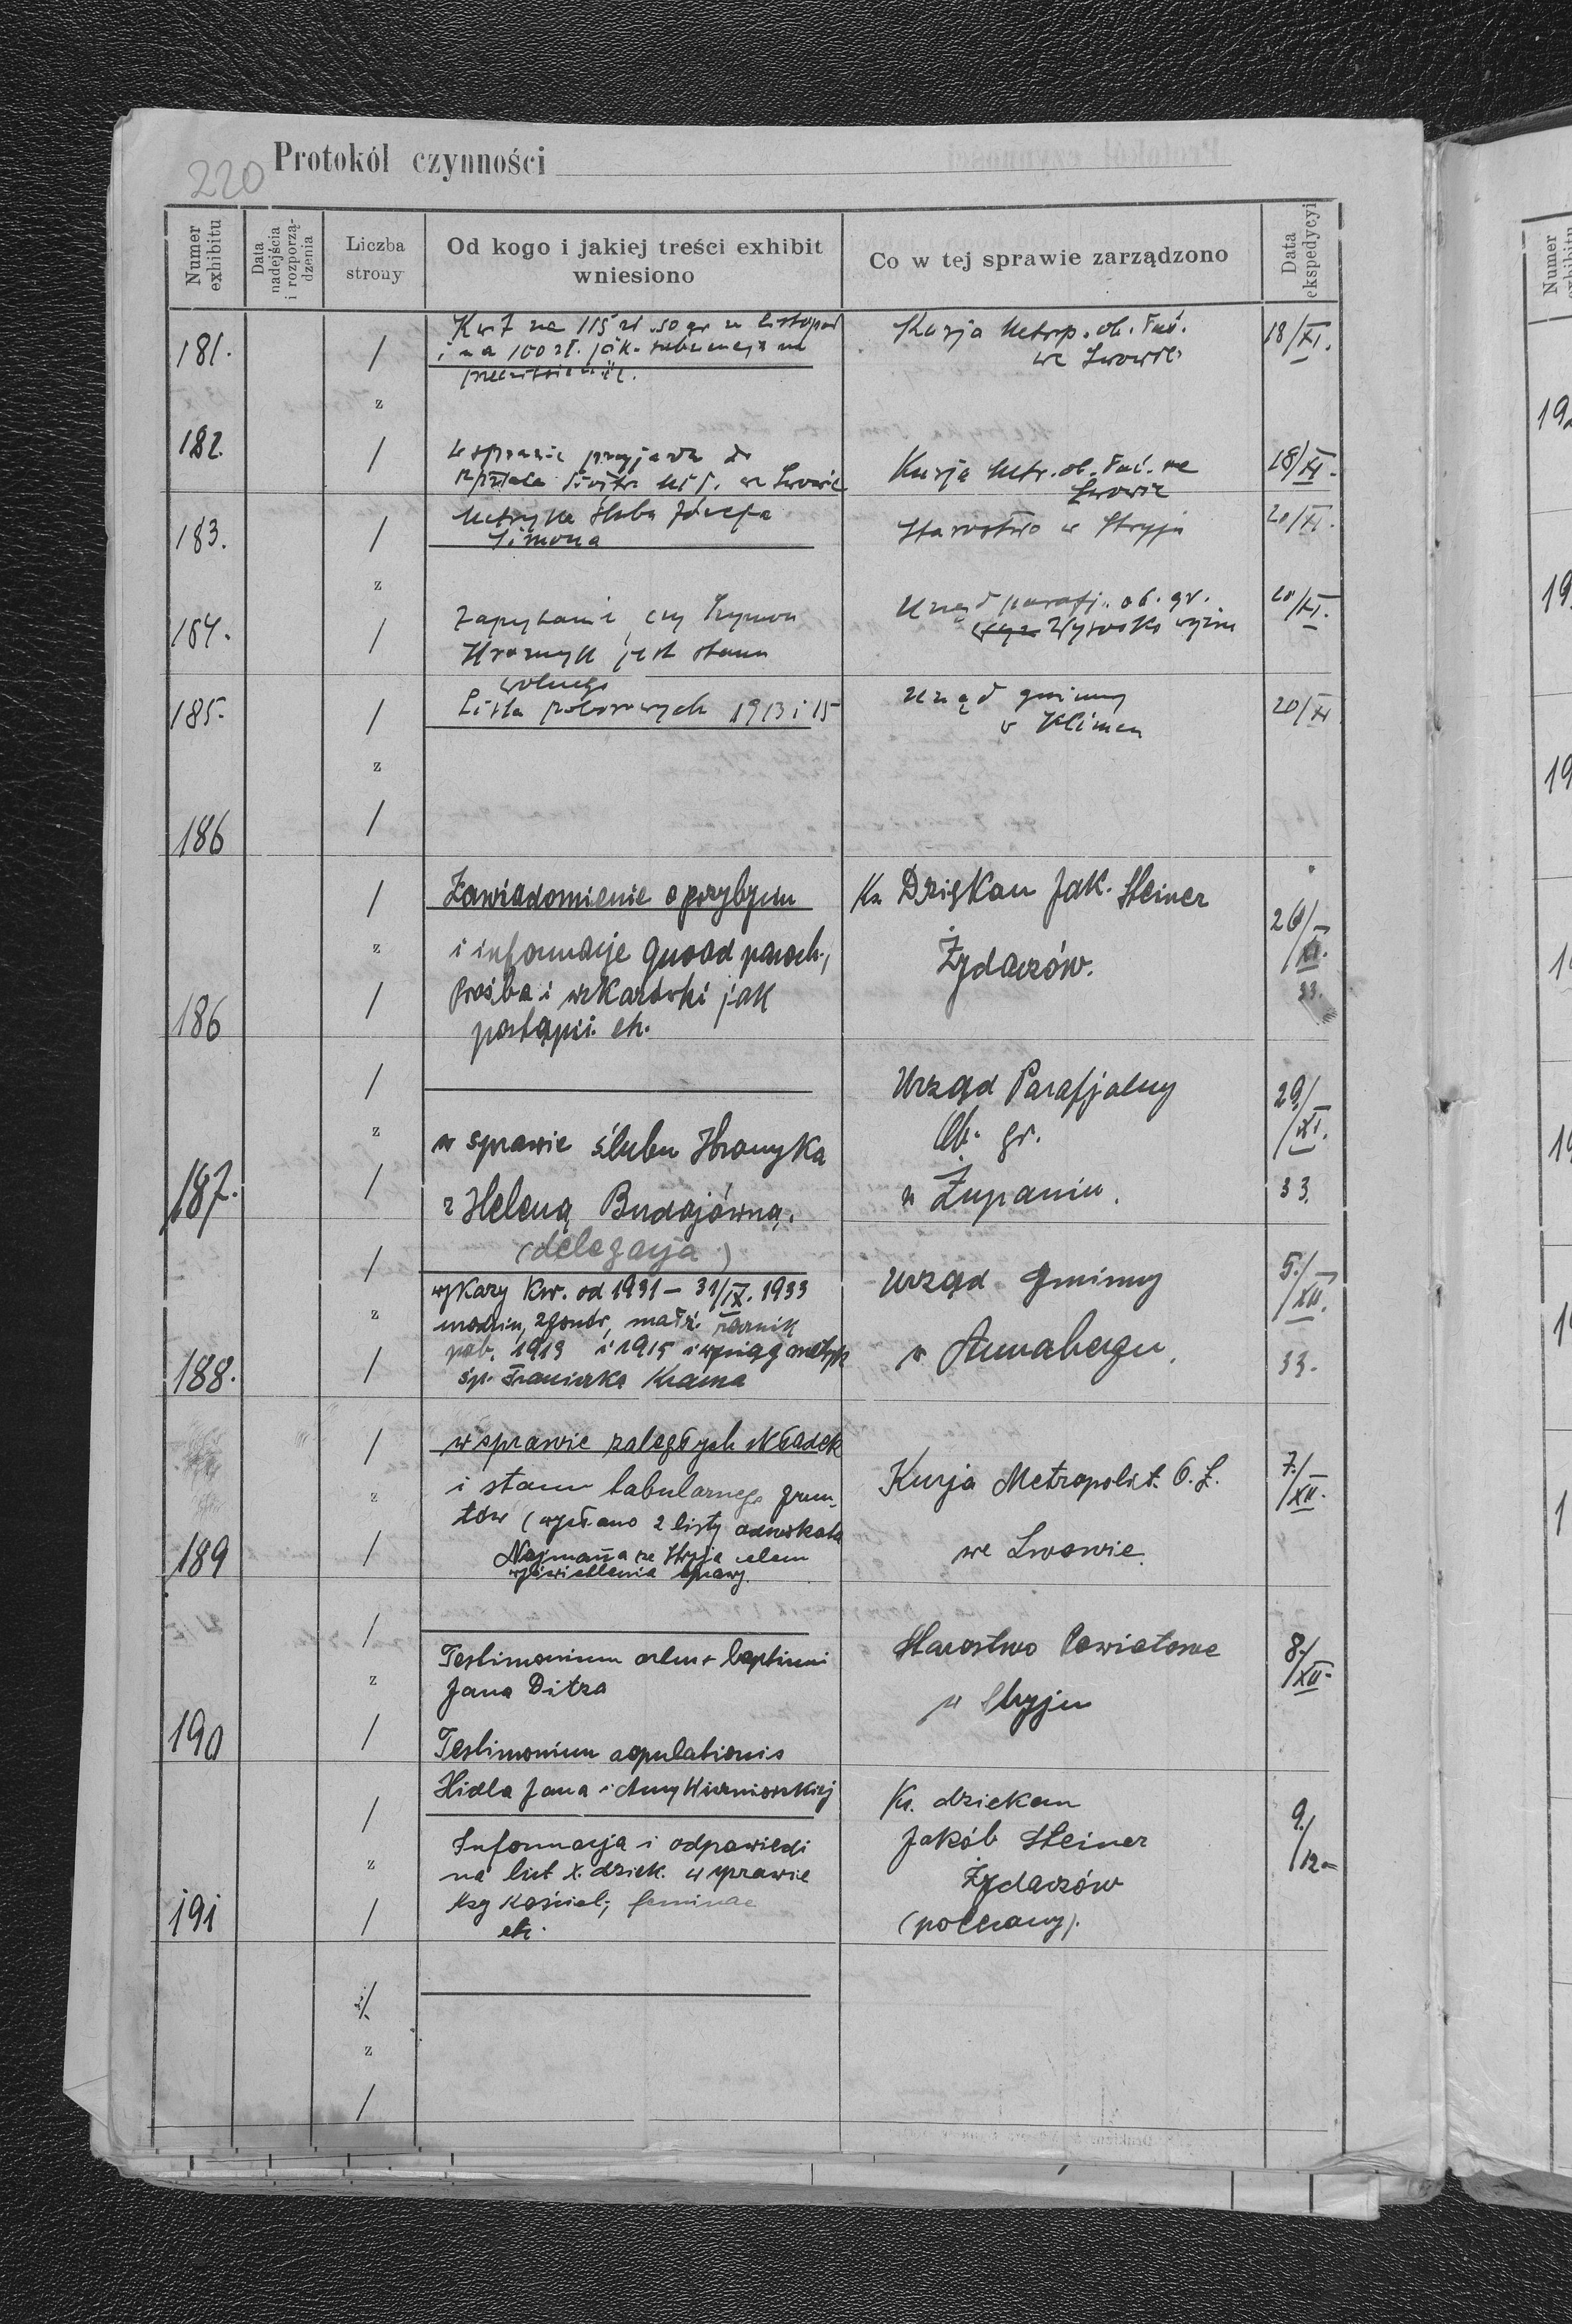 220 Protokół czynności
Numer exhibitu
Data nadejścia i rozporzą-dzenia
Liczba strony
Od kogo i jakiej treści exhibit wniesiono
Co w tej sprawie zarządzono
Data ekspedycyi
181. / Kwit na 115 zł. 50 gr za listopad Kurja Metrop. ob. łać. 18/XI.
i na 100 zł. jak. subwencja na we Lwowie
z
182. / W sprawie przyjazdu do Kurja Metr. ob. łać. we 18/XI.
szpitala Sióstr Mił. we Lwowie Lwowie
183. / Metryka ślubu Józefa Starostwo w Stryju 20/XI.
Simona
z
184. / Zapytanie, czy Szymon Urząd parafj. ob. gr. 20/XI.
jest stanu Wysocko wyżne
wolnego
185. / Lista poborowych 1913 i 15 Urząd gminny 20/XI
v Klimcu
z
186 /
/ Zawiadomienie o przybyciu Ks Dziekan Jak. Steiner 26/XI.
z i informacje quoad paroch., Żydaczów. 33.
186 / Prośba i wskazówki jak
postąpić. etc.
/ Urząd Parafjalny 29./XI.
z w sprawie ślubu Hronyka Ob. gr.
187. / z Heleną Budajówną. w Żupaniu. 33.
/ (delegacja) Urząd gminny 5./XII.
wykazy kw. od 1931 – 31/IX. 1933
z urodzin, zgonów, małż. rocznik
pob. 1913 i 1915 i wyciąg metryk w Annabergu. 33.
188. / śp. Franciszka Krama
/ w sprawie zaległych składek Kurja Metropolit. O. Ł. 7./XII.
z i stanu tabularnego grun-
tów (wysłano 2 listy adwokata we Lwowie.
189 / Najmana ze Stryja celem
wyświetlenia sprawy.
/ Starostwo Powiatowe 8./XII.
Testimonium ortus + baptismi
z Jana Ditza w Stryju
190 / Testimonium copulationis
Hidla Jana i Anny Wiszniowskiej
/ Ks. dziekan 9./12
Informacja i odpowiedź Jakób Steiner
z na list X. dziek. w sprawie Żydaczów
191 / Mszy kościel., feminae (polecony).
etc.
z/
z
/
Numer